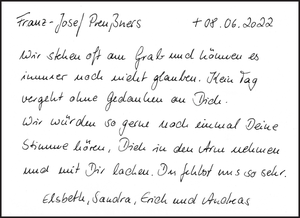 Franz-Josef Preußners + 08.06.2022
Wir stehen oft am Grab und können es
immer noch nicht glauben. Kein Tag
vergeht ohne Gedanken an Dich.
Wir würden so gerne noch einmal Deine
Stimme hören, Dich in den Arm nehmen
und mit Dir lachen. Du fehlst uns so sehr.
Elsbeth, Sandra, Erich und Andreas